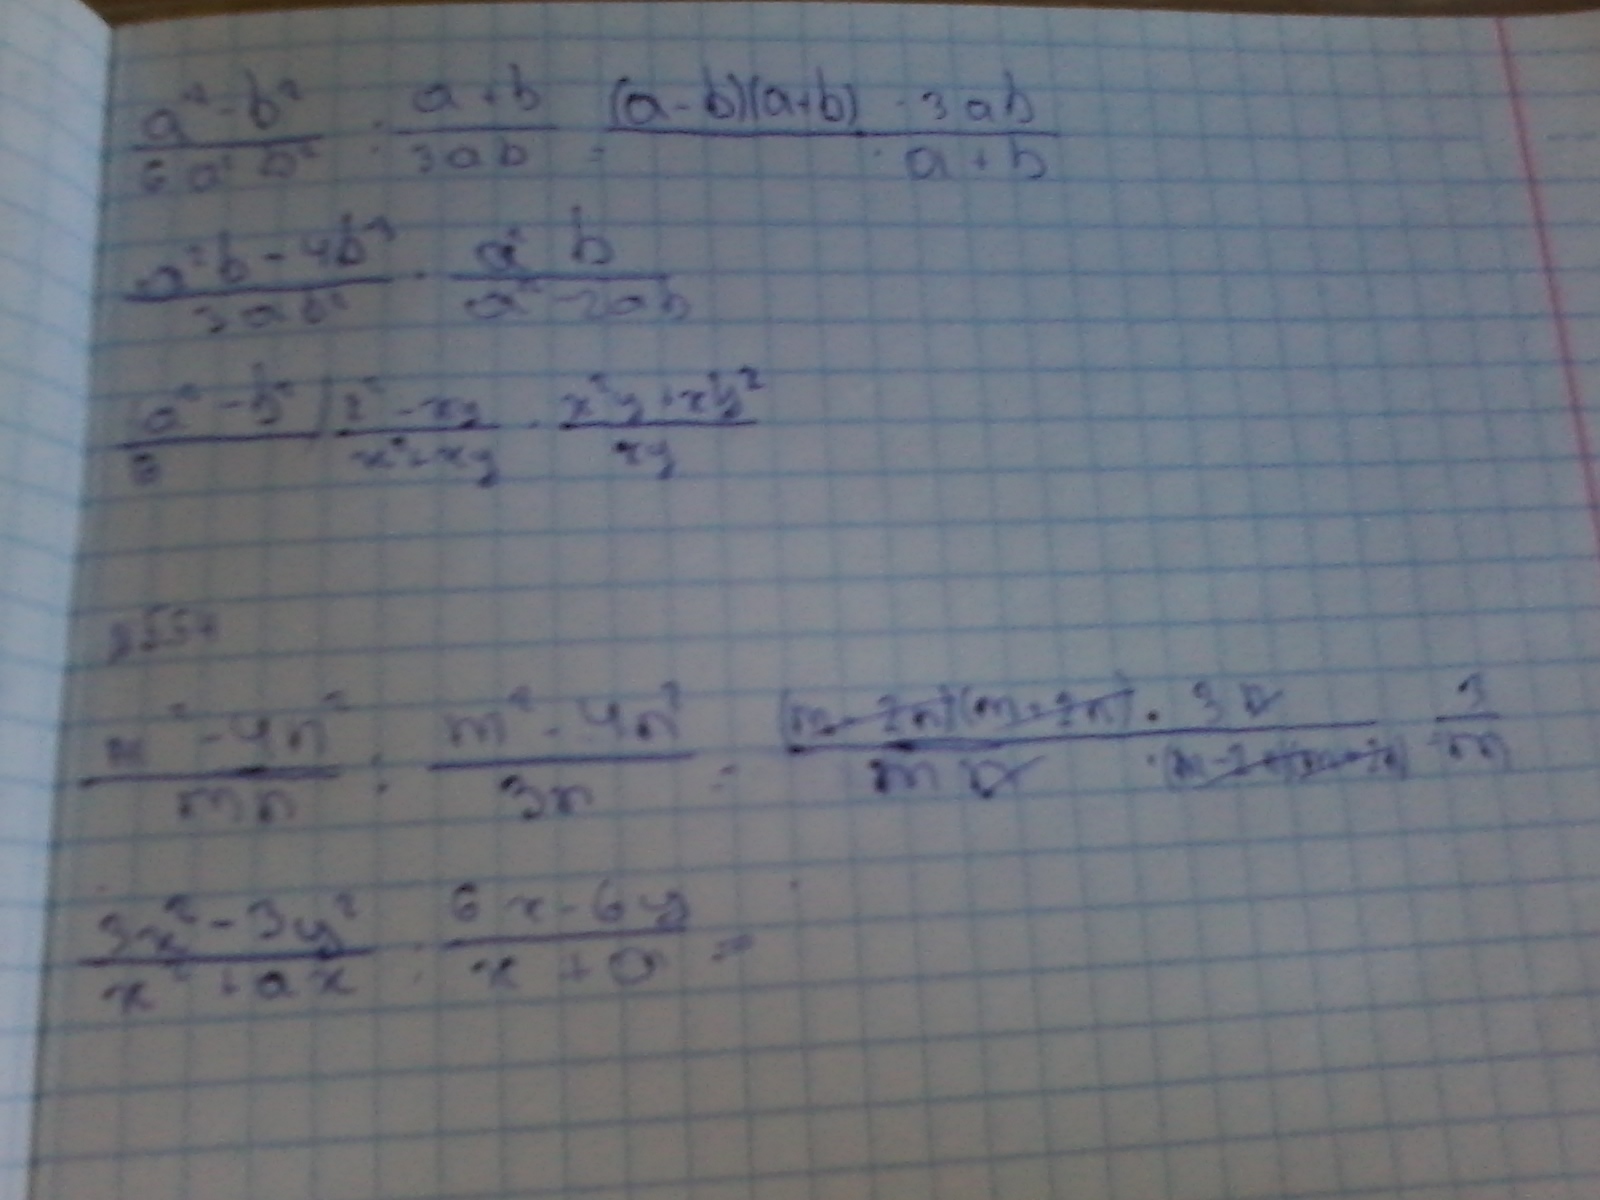 a² - b² / 6a²b² : a + b / 3ab = (a - b)(a + b) · 3ab / · a + b
a²b - 4b³ / 3ab² · a² b / a² - 2ab
a² - b² / 3 | x² - xy / x² + xy · x²y + xy² / xy
m² - 4n² / mn : m² - 4n² / 3n = (m - 2n)(m + 2n) · 3n / mn · (m - 2n)(m + 2n) 3 / m
3x² - 3y² / x² + ax : 6x - 6y / x + a =